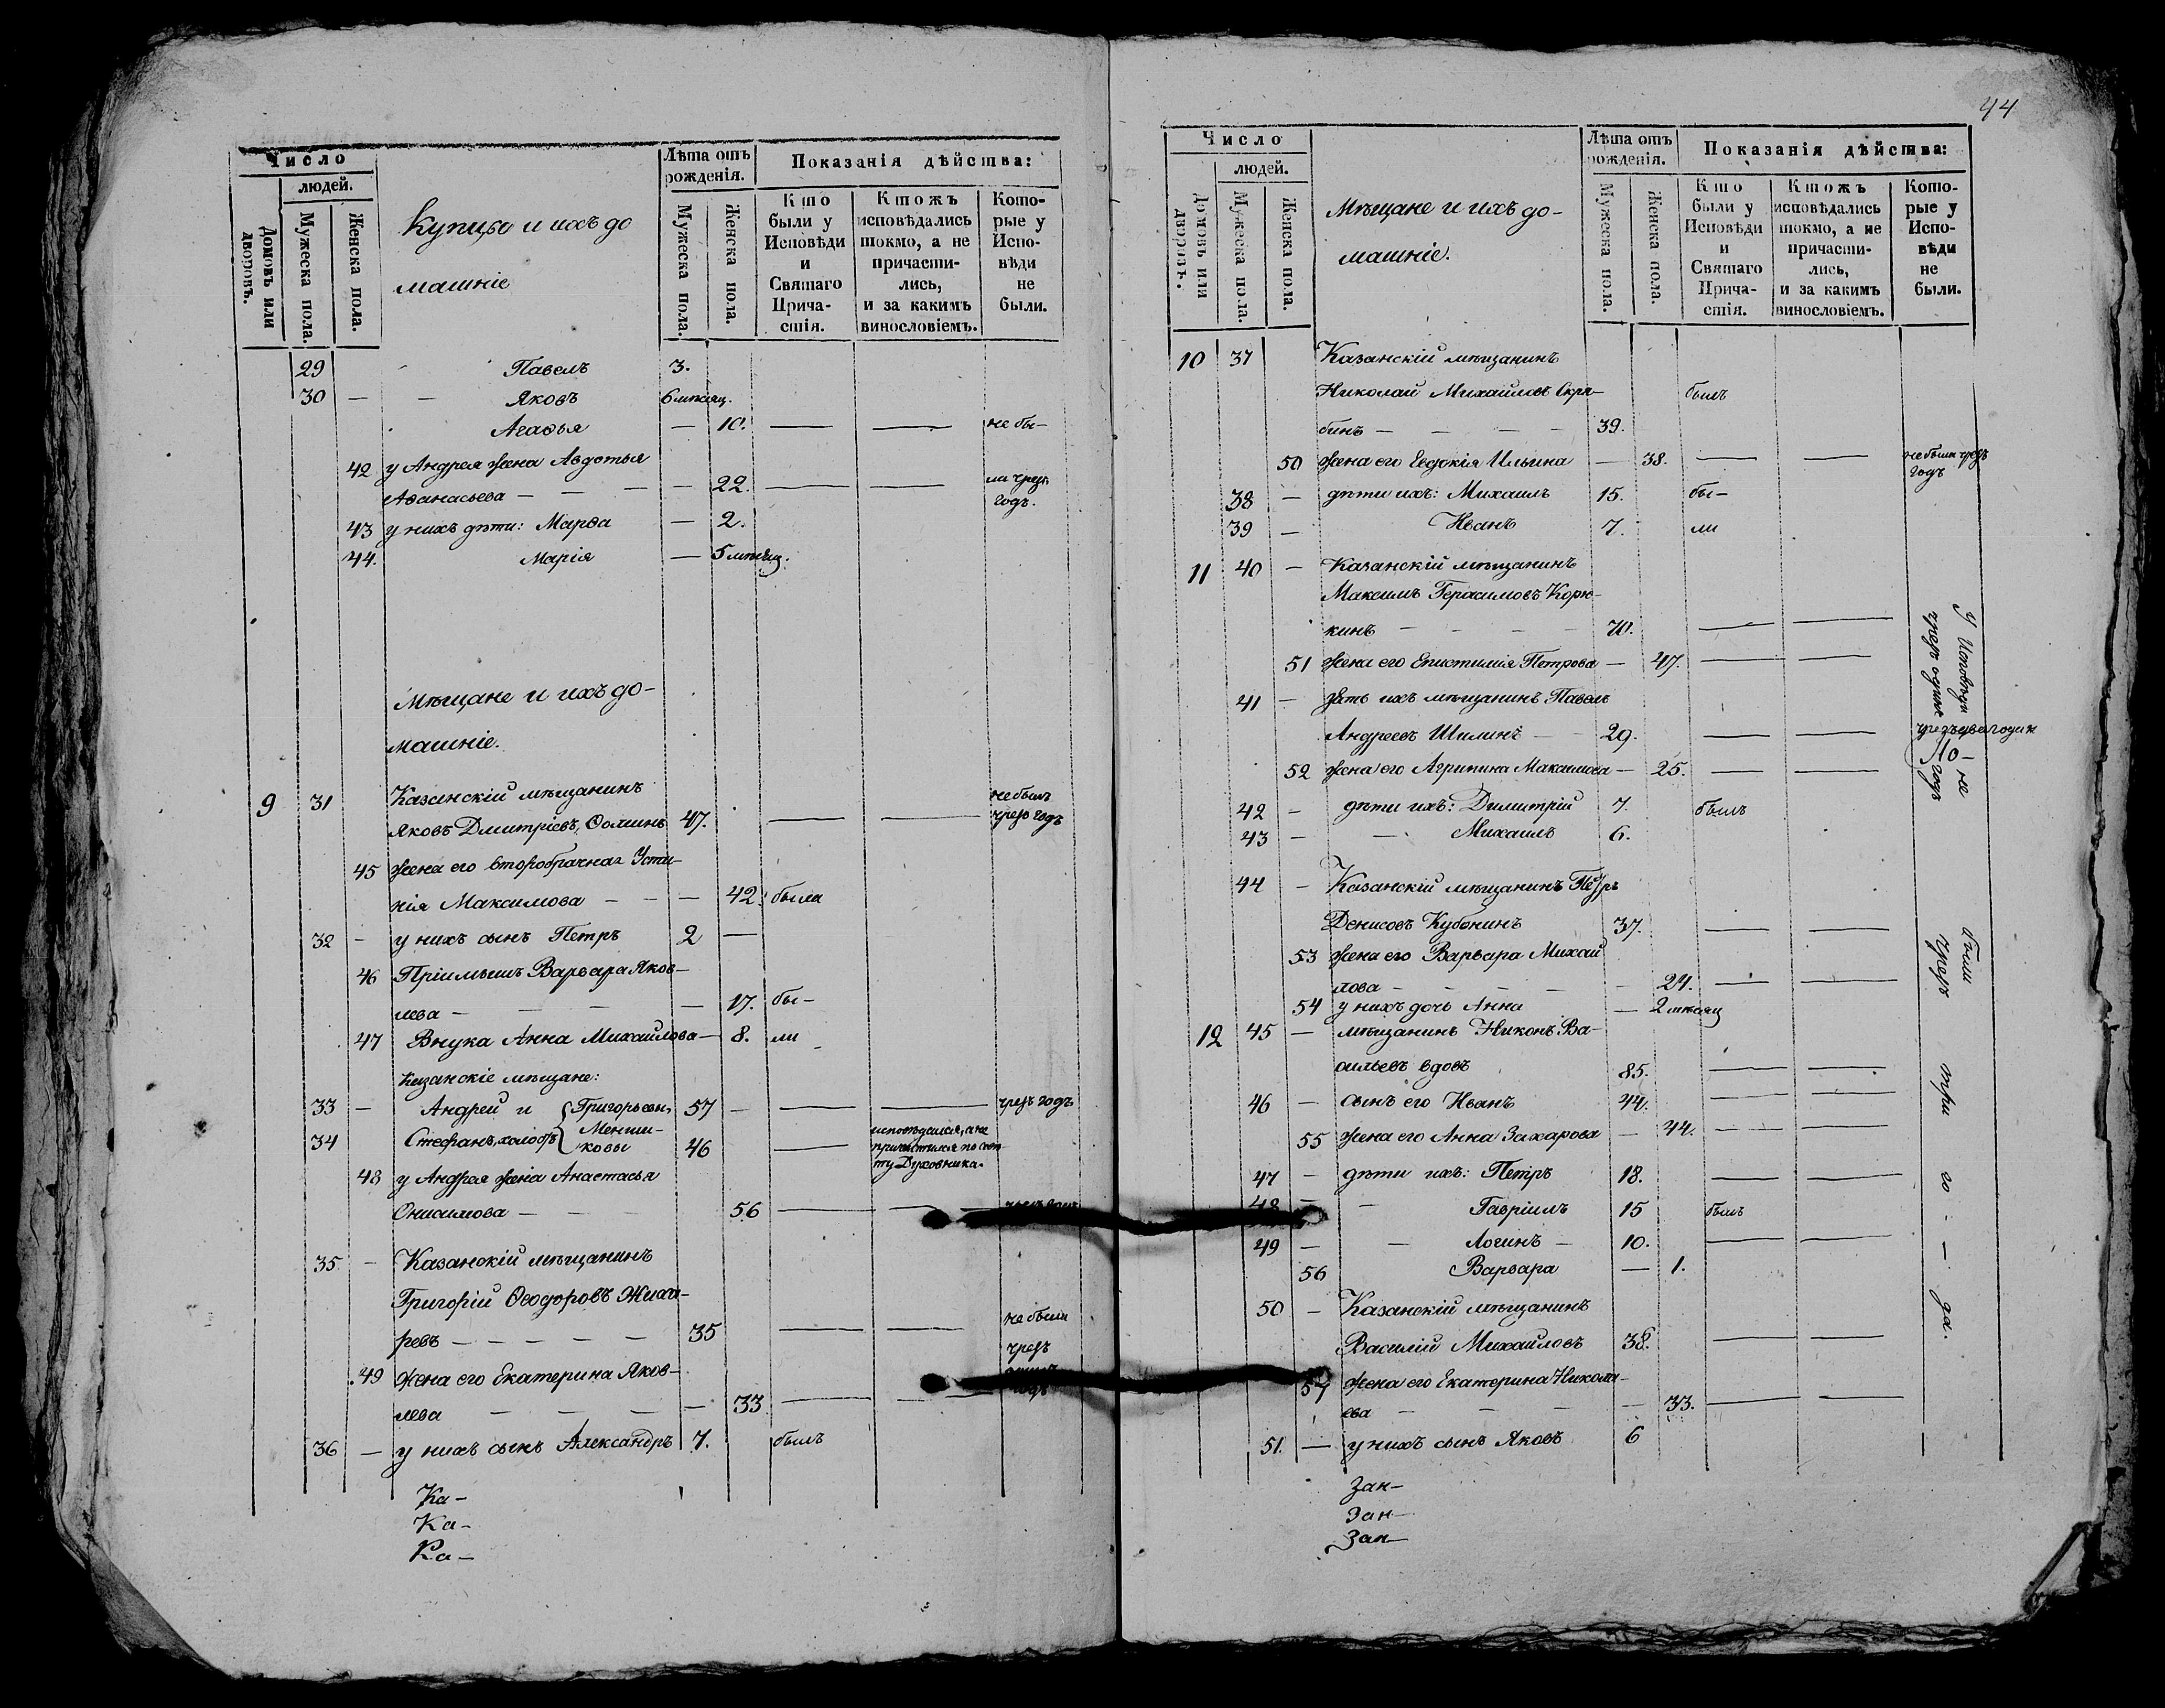 44
Число
людей.
Домовъ или дворовъ.
Мужеска пола.
Женска пола.
Купцы и ихъ до
машніе
Лѣта отъ рожденія.
Мужеска пола.
Женска пола.
Показанія дѣйства:
Кто были у Исповѣди и Святаго Прича-стія.
Ктожъ исповѣдались токмо, а не причасти-лись, и за какимъ винословіемъ.
Кото-рые у Испо-вѣди не были.
29 Павелъ 3.
30 — — Яковъ 6 мѣсяц.
Агафья — 10. — — не бы-
42 у Андрея жена Авдотья
Афанасьева — — — — 22. — — ли чрезъ
годъ.
43 у нихъ дѣти: Марфа — 2.
44. Марія — 5 мѣсяц.
Мѣщане и ихъ до-
машніе.
9 31 Казанскій мѣщанинъ не былъ
Яковъ Дмитріевъ Ѳоминъ 47. — — чрезъ годъ
45 жена его второбрачная Усти-
нія Максимова — — — 42. была
32 — у нихъ сынъ Петръ 2 —
46 Пріимышъ Варвара Яков-
лева — — — — 17. бы-
47 Внука Анна Михайлова — 8. ли
Казанскіе мѣщане:
33 — Андрей и Григорьевы 57 — — — чрезъ годъ
34 Стефанъ, холостъ Менши-
ковы 46 — исповѣдался, а не
причастился по совѣ-
ту Духовника.
48 у Андрея жена Анастасья
Онисимова — — — 56 — —
35. — Казанскій мѣщанинъ
Григорій Ѳеодоровъ Жиха-
ревъ — — — — — 35 — — не были
чрезъ
49 жена его Екатерина Яков-
лева — — — — — 33 — — годъ
36 — у нихъ сынъ Александръ 7. былъ
Ка-
Ка-
Ка-
Число
людей.
Домовъ или дворовъ.
Мужеска пола.
Женска пола.
Мѣщане и ихъ до-
машніе.
Лѣта отъ рожденія.
Мужеска пола.
Женска пола.
Показанія дѣйства:
Кто были у Исповѣди и Святаго Прича-стія.
Ктожъ исповѣдались токмо, а не причасти-лись, и за какимъ винословіемъ.
Кото-рые у Испо-вѣди не были.
10 37 Казанскій мѣщанинъ
Николай Михайловъ Скря- былъ
бинъ — — — — 39.
50 жена его Евдокія Ильина — 38. — — не была чрезъ
годъ
38 — дѣти ихъ: Михаилъ 15. бы-
39 — Иванъ 7. ли
11 40 — Казанскій мѣщанинъ
Максимъ Герасимовъ Корю-
кинъ — — — — 70. — —
51 жена его Епистимія Петрова — 47. — —
41 — зять ихъ мѣщанинъ Павелъ
Андреевъ Шилинъ — 29. — — чрезъ два года
52 жена его Агрипина Максимова — 25. — —
42 — дѣти ихъ: Димитрій 7. былъ
43 — — Михаилъ 6.
44 — Казанскій мѣщанинъ Петръ
Денисовъ Кубонинъ 37. — —
53 жена его Варвара Михай
лова — — — — — 24. — —
54 у нихъ дочь Анна — 2 мѣсяц
12 45 — мѣщанинъ Никонъ Ва-
сильевъ вдовъ 85. — —
46 — сынъ его Иванъ 44. — —
55 жена его Анна Захарова — 44. — —
47 — дѣти ихъ: Петръ 18. — —
48 — — Гавріилъ 15 былъ
49 — — Логинъ — 10. — —
56 Варвара — 1.
50 — Казанскій мѣщанинъ
Василій Михайловъ 38. — —
57 жена его Екатерина Никола-
ева — — — — 33. — —
51. — у нихъ сынъ Яковъ 6
У Исповѣди не
чрезъ одинъ годъ
были
чрезъ три го - да.
Зан-
Зан-
Зан-